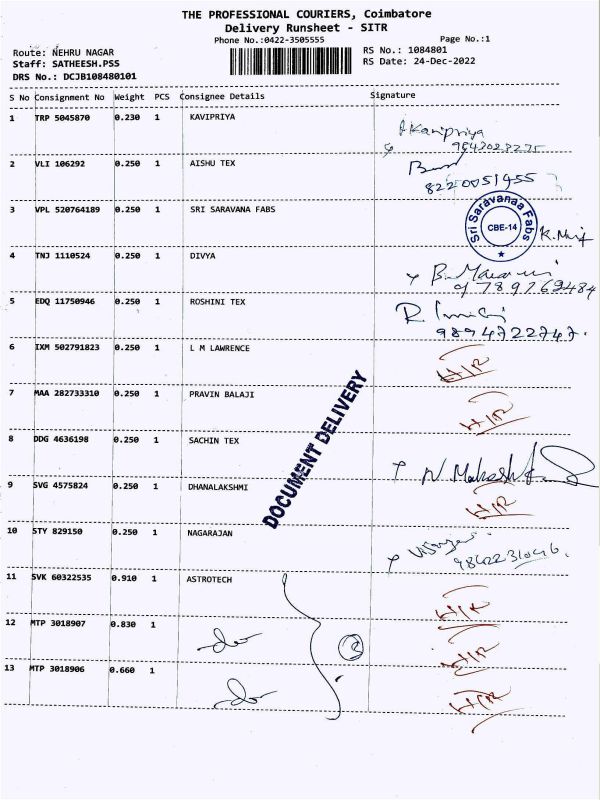 THE PROFESSIONAL COURIERS, Coimbatore
Delivery Runsheet - SITR
Phone No.:0422-3505555 Page No.:1
Route: NEHRU NAGAR RS No.: 1084801
Staff: SATHEESH.PSS RS Date: 24-Dec-2022
DRS No.: DCJB108480101
S No Consignment No Weight PCS Consignee Details Signature
1 TRP 5045870 0.230 1 KAVIPRIYA
Kavipriya
2 VLI 106292 0.250 1 AISHU TEX
8220051455
3 VPL 520764189 0.250 1 SRI SARAVANA FABS
Sri Saravanaa Fabs
CBE-14
4 TNJ 1110524 0.250 1 DIVYA
5 EDQ 11750946 0.250 1 ROSHINI TEX
9894722747.
6 IXM 502791823 0.250 1 L M LAWRENCE
H/R
7 MAA 282733310 0.250 1 PRAVIN BALAJI
H/R
8 DDG 4636198 0.250 1 SACHIN TEX
N Makesh
DOCUMENT DELIVERY
9 SVG 4575824 0.250 1 DHANALAKSHMI
H/R
10 STY 829150 0.250 1 NAGARAJAN
11 SVK 60322535 0.910 1 ASTROTECH
H/R
12 MTP 3018907 0.830 1 do
H/R
13 MTP 3018906 0.660 1 do
H/R